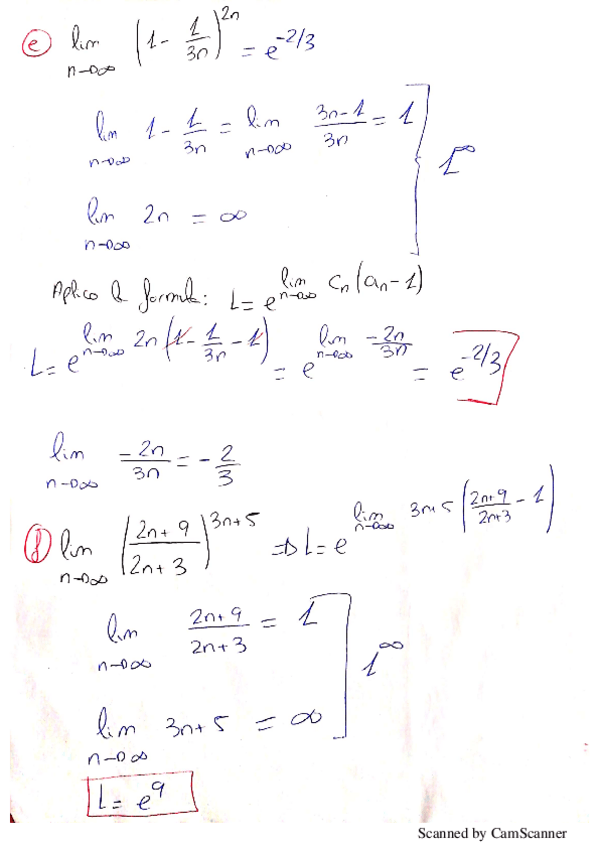 e) lim n→∞ (1 - 1/3n)^2n = e^-2/3
lim n→∞ 1 - 1/3n = lim n→∞ 3n-1/3n = 1
1^∞
lim n→∞ 2n = ∞
Aplico la formula: L = e^lim n→∞ cn(an-1)
L = e^lim n→∞ 2n(1 - 1/3n - 1) = e^lim n→∞ -2n/3n = e^-2/3
lim n→∞ -2n/3n = -2/3
f) lim n→∞ (2n+9/2n+3)^3n+5 ⇒ L = e^lim n→∞ 3n+5(2n+9/2n+3 - 1)
lim n→∞ 2n+9/2n+3 = 1
1^∞
lim n→∞ 3n+5 = ∞
L = e^9
Scanned by CamScanner